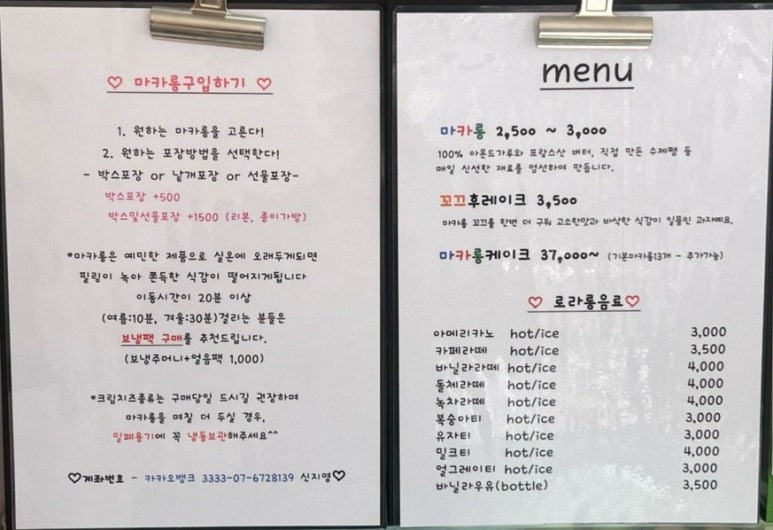 ♡ 마카롱구입하기 ♡
1. 원하는 마카롱을 고른다!
2. 원하는 포장방법을 선택한다!
- 박스포장 or 낱개포장 or 선물포장-
박스포장 +500
박스및선물포장 +1500 (리본, 종이가방)
*마카롱은 예민한 제품으로 실온에 오래두게되면
필링이 녹아 쫀득한 식감이 떨어지게됩니다
이동시간이 20분 이상
(여름:10분, 겨울:30분)걸리는 분들은
보냉팩 구매를 추천드립니다.
(보냉주머니+얼음팩 1,000)
*크림치즈종류는 구매당일 드시길 권장하며
마카롱을 며칠 더 두실 경우,
밀폐용기에 꼭 냉동보관해주세요^^
♡계좌번호 - 카카오뱅크 3333-07-6728139 신지영♡
menu
마카롱 2,500 ~ 3,000
100% 아몬드가루와 프랑스산 버터, 직접 만든 수제쨈 등
매일 신선한 재료를 엄선하여 만듭니다.
꼬끄후레이크 3,500
마카롱 꼬끄를 한번 더 구워 고소한맛과 바삭한 식감이 일품인 과자예요.
마카롱케이크 37,000~ (기본마카롱13개 - 추가가능)
♡ 로라롱음료♡
아메리카노 hot/ice 3,000
카페라떼 hot/ice 3,500
바닐라라떼 hot/ice 4,000
돌체라떼 hot/ice 4,000
녹차라떼 hot/ice 4,000
복숭아티 hot/ice 3,000
유자티 hot/ice 3,000
밀크티 hot/ice 4,000
얼그레이티 hot/ice 3,000
바닐라우유(bottle) 3,500